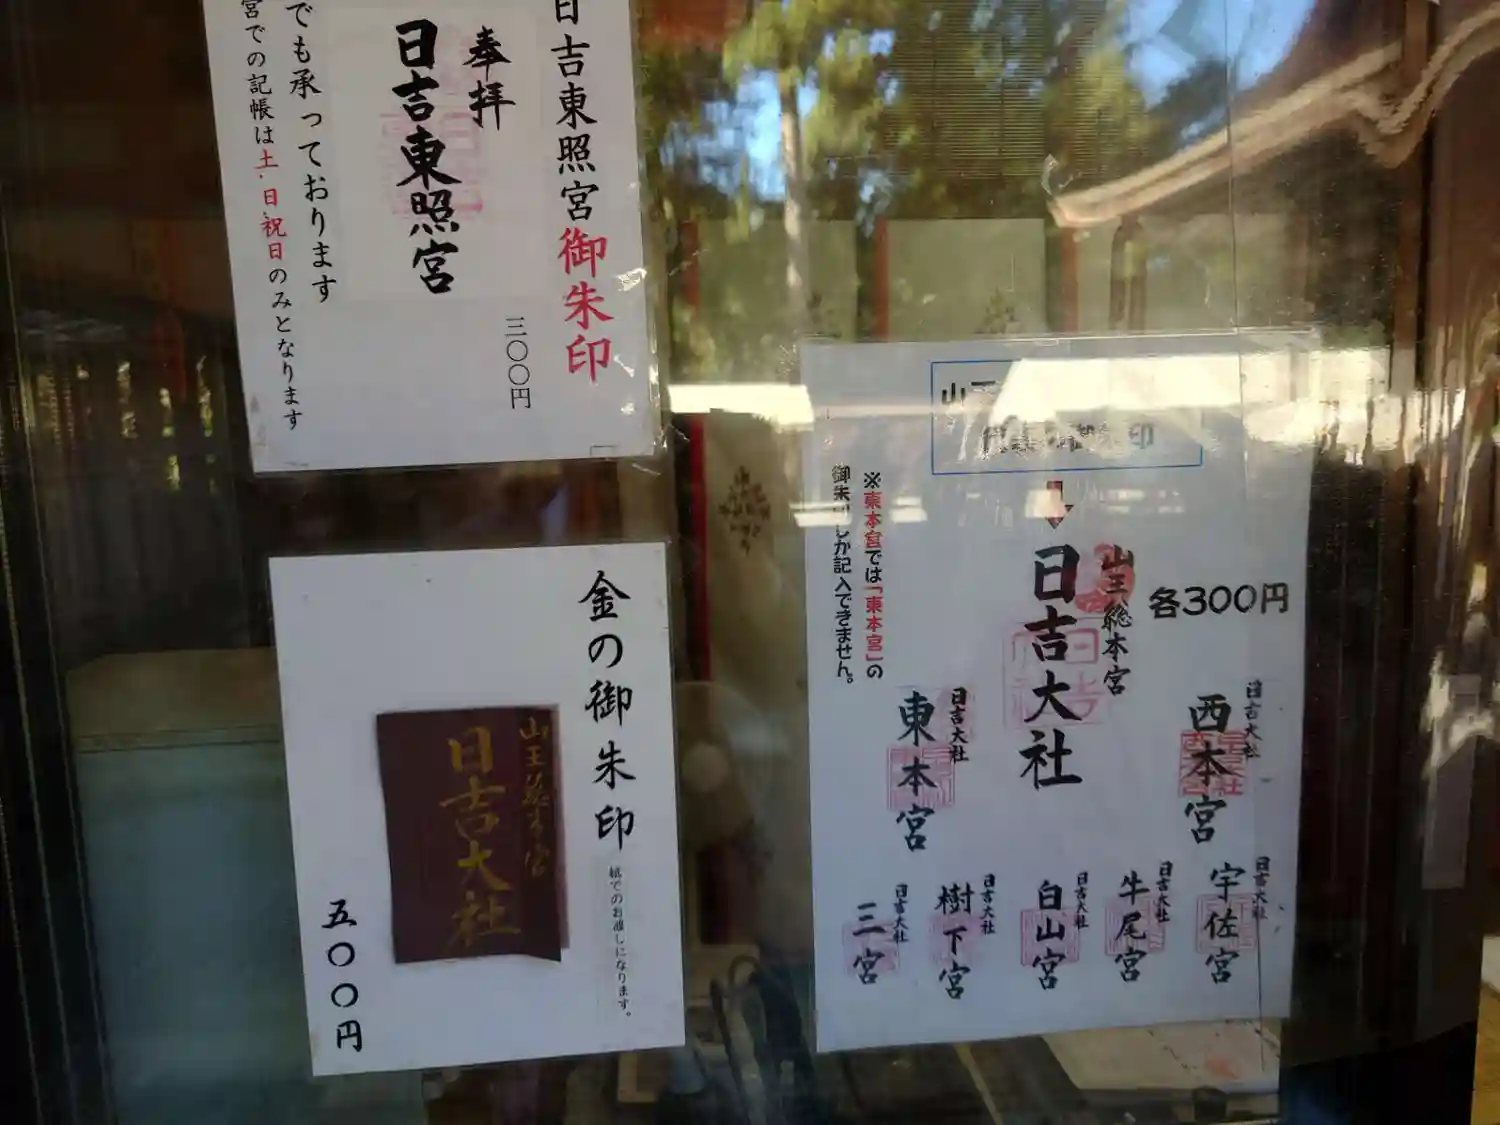 日吉東照宮御朱印
三〇〇円
奉拝
日吉東照宮
でも承っております
宮での記帳は土・日祝日のみとなります
金の御朱印
紙でのお渡しになります。
山王総本宮
日吉大社
五〇〇円
各300円
山王総本宮
日吉大社
※東本宮では「東本宮」の
御朱印しか記入できません。
日吉大社
西本宮
日吉大社
東本宮
日吉大社
宇佐宮
日吉大社
牛尾宮
日吉大社
白山宮
日吉大社
樹下宮
日吉大社
三宮